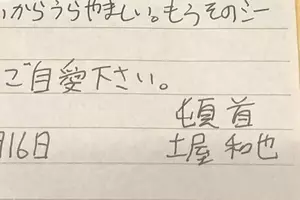 からうらやましい。もうそのシー
ご自愛下さい。
頓首
月16日
土屋 和也